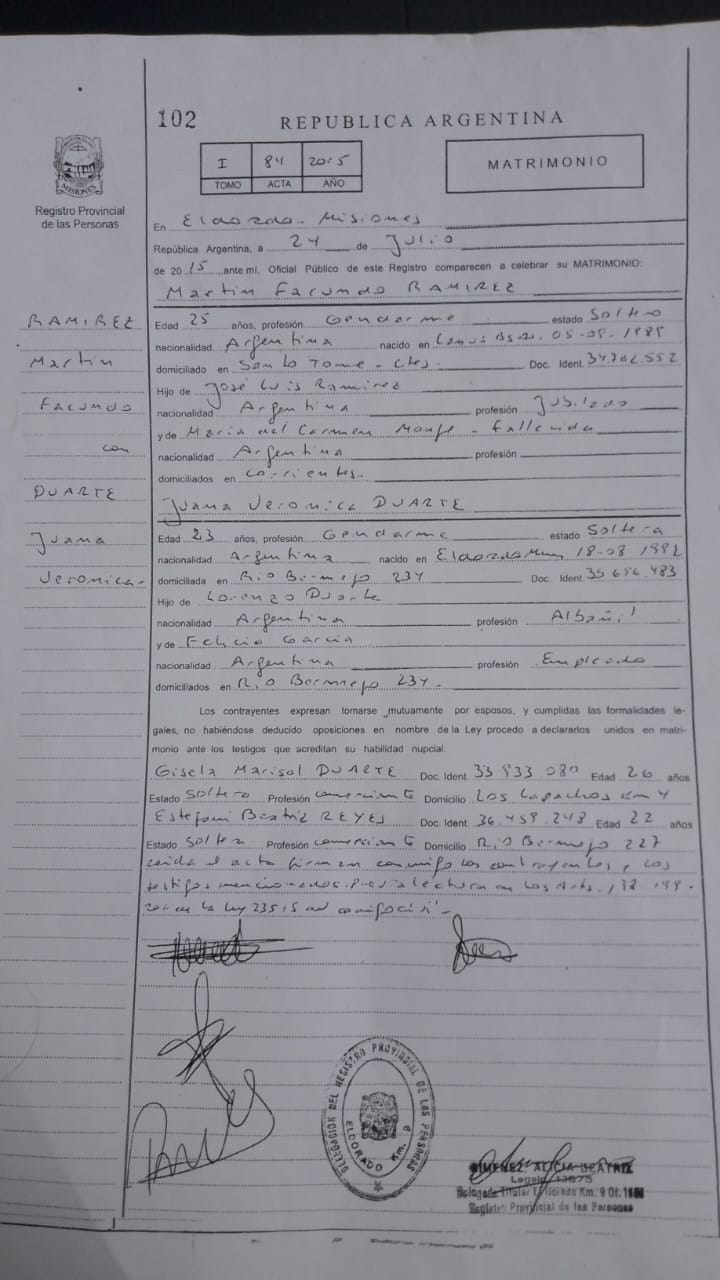 102
REPUBLICA ARGENTINA
I 84 2015
TOMO ACTA AÑO
MATRIMONIO
MISIONES
Registro Provincial
de las Personas
En Eldorado - Misiones
República Argentina, a 24 de Julio
de 2015 ante mí, Oficial Público de este Registro comparecen a celebrar su MATRIMONIO:
Martin Facundo RAMIREZ
Edad 25 años, profesión Gendarme estado Soltero
nacionalidad Argentina nacido en
domiciliado en Santo Tome - Ctes. Doc. Ident.
Hijo de José Luis Ramirez
nacionalidad Argentina profesión Jubilado
y de Maria del Carmen
nacionalidad Argentina profesión
domiciliados en Corrientes.
Juana Veronica DUARTE
Edad 23 años, profesión Gendarme estado Soltera
nacionalidad Argentina nacido en
domiciliada en Rio Bermejo 234 Doc. Ident.
Hijo de Lorenzo Duarte
nacionalidad Argentina profesión Albañil
y de Garcia
nacionalidad Argentina profesión Empleada
domiciliados en Rio Bermejo 234.
RAMIREZ
Martin
Facundo
con
DUARTE
Juana
Veronica
Los contrayentes expresan tomarse mutuamente por esposos, y cumplidas las formalidades le-
gales, no habiéndose deducido oposiciones en nombre de la Ley procedo a declararlos unidos en matri-
monio ante los testigos que acreditan su habilidad nupcial.
Gisela Marisol DUARTE Doc. Ident. Edad 26 años
Estado Soltera Profesión comerciante Domicilio Los Lapachos Km 4
Beatriz REYES Doc. Ident. 36.459.248 Edad 22 años
Estado Soltera Profesión comerciante Domicilio Rio Bermejo 227
el acta firman conmigo los contrayentes y los
testigos mencionados. Previa lectura
DELEGACION DEL REGISTRO PROVINCIAL DE LAS PERSONAS
ELDORADO Km. 9
GIMENEZ, ALICIA BEATRIZ
Delegada Titular Eldorado Km. 9
Registro Provincial de las Personas